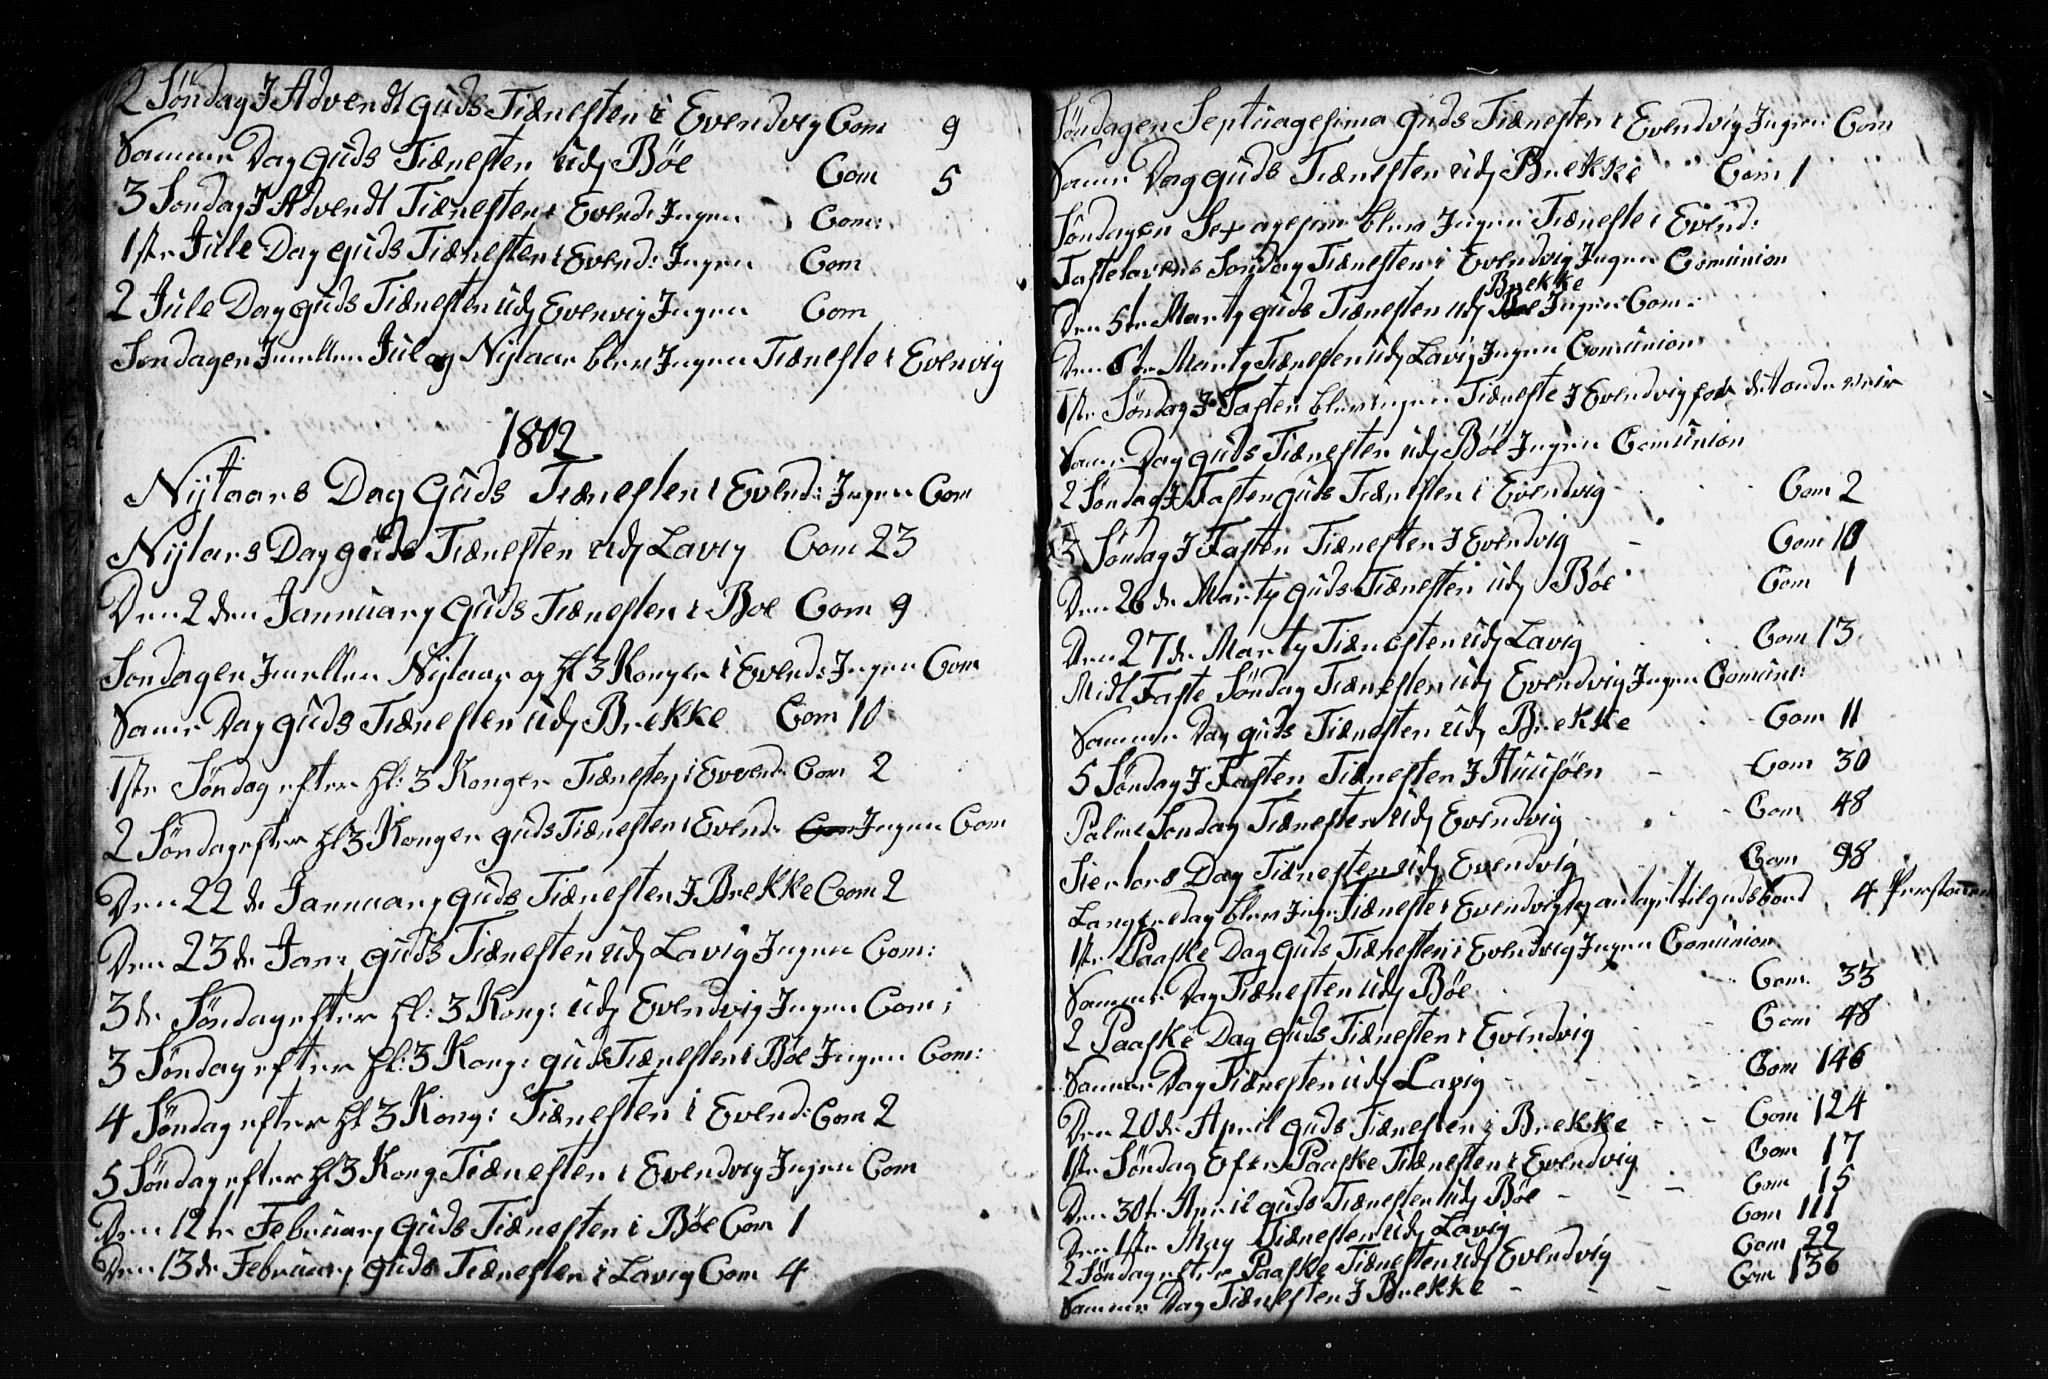 2 Søndag I Advendt Guds Tiænesten i Evendvig Com 9
Samme Dag Guds Tiænesten udj Böe Com 5
3 Søndag I Advendt Tiænesten i Evend: Ingen Com:
1ste Jule Dag Guds Tiænesten i Evend: Ingen Com
2 Jule Dag Guds Tiænesten udj Evenvig Ingen Com
Søndagen Imellem Jul og Nijtaar blev Ingen Tiæneste i Evenvig
1802
Nijtaars Dag Guds Tiænesten i Evend: Ingen Com
Nijtars Dag Guds Tiænesten udj Lavig Com 23
Den 2den Jannuary Guds Tiænesten i Boe Com 9
Søndagen Imellem Nijtaar og hl 3 Konger i Evend: Ingen Com
Same Dag Guds Tiænesten udj Brekke Com 10
1ste Søndag efter hl: 3 Konger Tiænesten i Evend: Com 2
2 Søndag efter hl 3 Konger Guds Tiænesten i Evend: Com Ingen Com
Den 22de Jannuary Guds Tiænesten I Brekke Com 2
Den 23de Jan: Guds Tiænesten udj Lavig Ingen Com:
3de Søndag efter hl: 3 Kong: udj Evendvig Ingen Com:
3 Søndag efter hl: 3 Kong: Guds Tiænesten i Böe Ingen Com:
4 Søndag efter hl 3 Kong: Tiænesten i Evend: Com 2
5 Søndag efter hl 3 Kong Tiænesten i Evendvig Ingen Com
Den 12te February Guds Tiænesten i Böe Com 1
Den 13de Februarj Guds Tiænesten i Lavig Com 4
Søndagen Septuagesima Guds Tiænesten i Evendvig Ingen Com
Same Dag Guds Tiænesten udj Brekke Com 1
Søndagen Sexagesima blev Ingen Tiæneste i Evend:
Fastelavens Søndag Tiænesten i Evendvig Ingen Comunion
Brekke
Den 5te Marty Guds Tiænesten udj Boe Ingen Com:
Den 6te Marty Tiænesten udj Lavig Ingen Comunion
1ste Søndag I Fasten blev ingen Tiæneste I Evendvig for det onde veir
Same Dag Guds Tiænesten udj Böe Ingen Comunion
2 Søndag I Fasten Guds Tiænesten i Evendvig Com 2
3 Søndag I Fasten Tiænesten I Evendvig Com 10
Den 26de Marty Guds Tiænesten udj Böe Com 1
Den 27de Marty Tiænesten udj Lavig Com 13
Midt Faste Søndag Tiænesten udj Evendvig Ingen Comuni:
Samme Dag Guds Tiænesten udj Brekke Com 11
5 Søndag I Fasten Tiænesten I Huusöen Com 30
Palme Søndag Tiænesten udj Evendvig Com 48
Skertors Dag Tiænesten udj Evendvig Com 98
Langfredag blev Ingen Tiæneste i Evendvig og antaget til Guds bord 4 Personer
1ste Paaske Dag Guds Tiænesten i Evendvig Ingen Comunion
Samme Dag Tiænesten udj Böe Com 33
2 Paaske Dag Guds Tiænesten i Evendvig Com 48
Samme Dag Tiænesten udj Lavig Com 146
Den 20de April Guds Tiænesten i Brekke Com 124
1ste Søndag Efter Paaske Tiænesten i Evendvig Com 17
Den 30te April Guds Tiænesten udj Böe Com 15
Den 1ste May Tiænesten udj Lavig Com 111
2 Søndag efter Paaske Tiænesten udj Evendvig Com 22
Samme Dag Tiænesten I Brekke Com 136